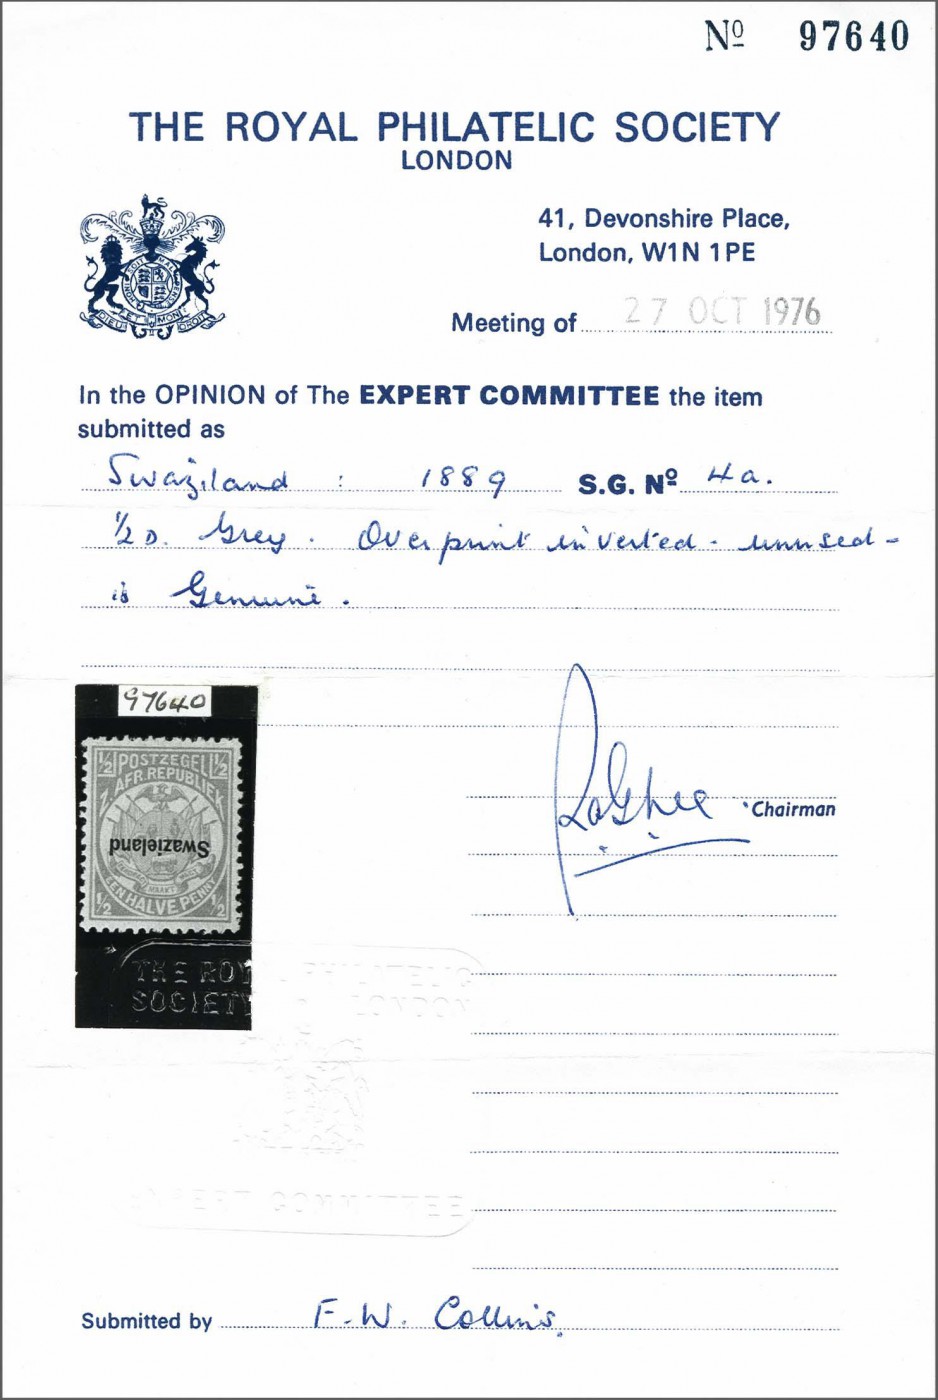 Nº 97640
THE ROYAL PHILATELIC SOCIETY
LONDON
41, Devonshire Place,
London, W1N 1PE
Meeting of 27 OCT 1976
In the OPINION of The EXPERT COMMITTEE the item
submitted as
Swaziland : 1889 S.G. Nº 4a.
½ D. Grey. Overprint inverted - unused -
is Genuine.
97640
½ POSTZEGEL ½
Z. AFR. REPUBLIEK
Swazieland
EEN HALVE PENNY
½ ½
Chairman
THE ROYAL PHILATELIC
SOCIETY LONDON
EXPERT COMMITTEE
Submitted by F. W. Collins.